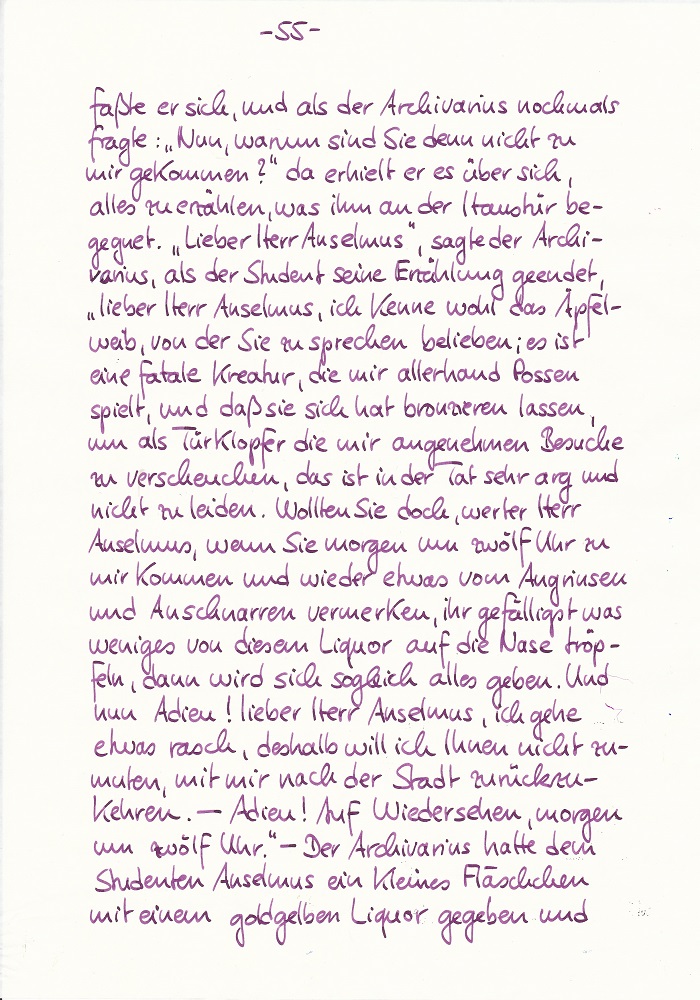 -55-
faßte er sich, und als der Archivarius nochmals
fragte: „Nun, warum sind Sie denn nicht zu
mir gekommen?“ da erhielt er es über sich,
alles zu erzählen, was ihm an der Haustür be-
gegnet. „Lieber Herr Anselmus“, sagte der Archi-
varius, als der Student seine Erzählung geendet,
„lieber Herr Anselmus, ich kenne wohl das Äpfel-
weib, von der Sie zu sprechen belieben; es ist
eine fatale Kreatur, die mir allerhand Possen
spielt, und daß sie sich hat bronzieren lassen,
um als Türklopfer die mir angenehmen Besuche
zu verscheuchen, das ist in der Tat sehr arg und
nicht zu leiden. Wollten Sie doch, werter Herr
Anselmus, wenn Sie morgen um zwölf Uhr zu
mir kommen und wieder etwas vom Angrinsen
und Anschnarren vermerken, ihr gefälligst was
weniges von diesem Liquor auf die Nase tröp-
feln, dann wird sich sogleich alles geben. Und
nun Adieu! lieber Herr Anselmus, ich gehe
etwas rasch, deshalb will ich Ihnen nicht zu-
muten, mit mir nach der Stadt zurückzu-
kehren. — Adieu! Auf Wiedersehen, morgen
um zwölf Uhr.“ — Der Archivarius hatte dem
Studenten Anselmus ein kleines Fläschchen
mit einem goldgelben Liquor gegeben und